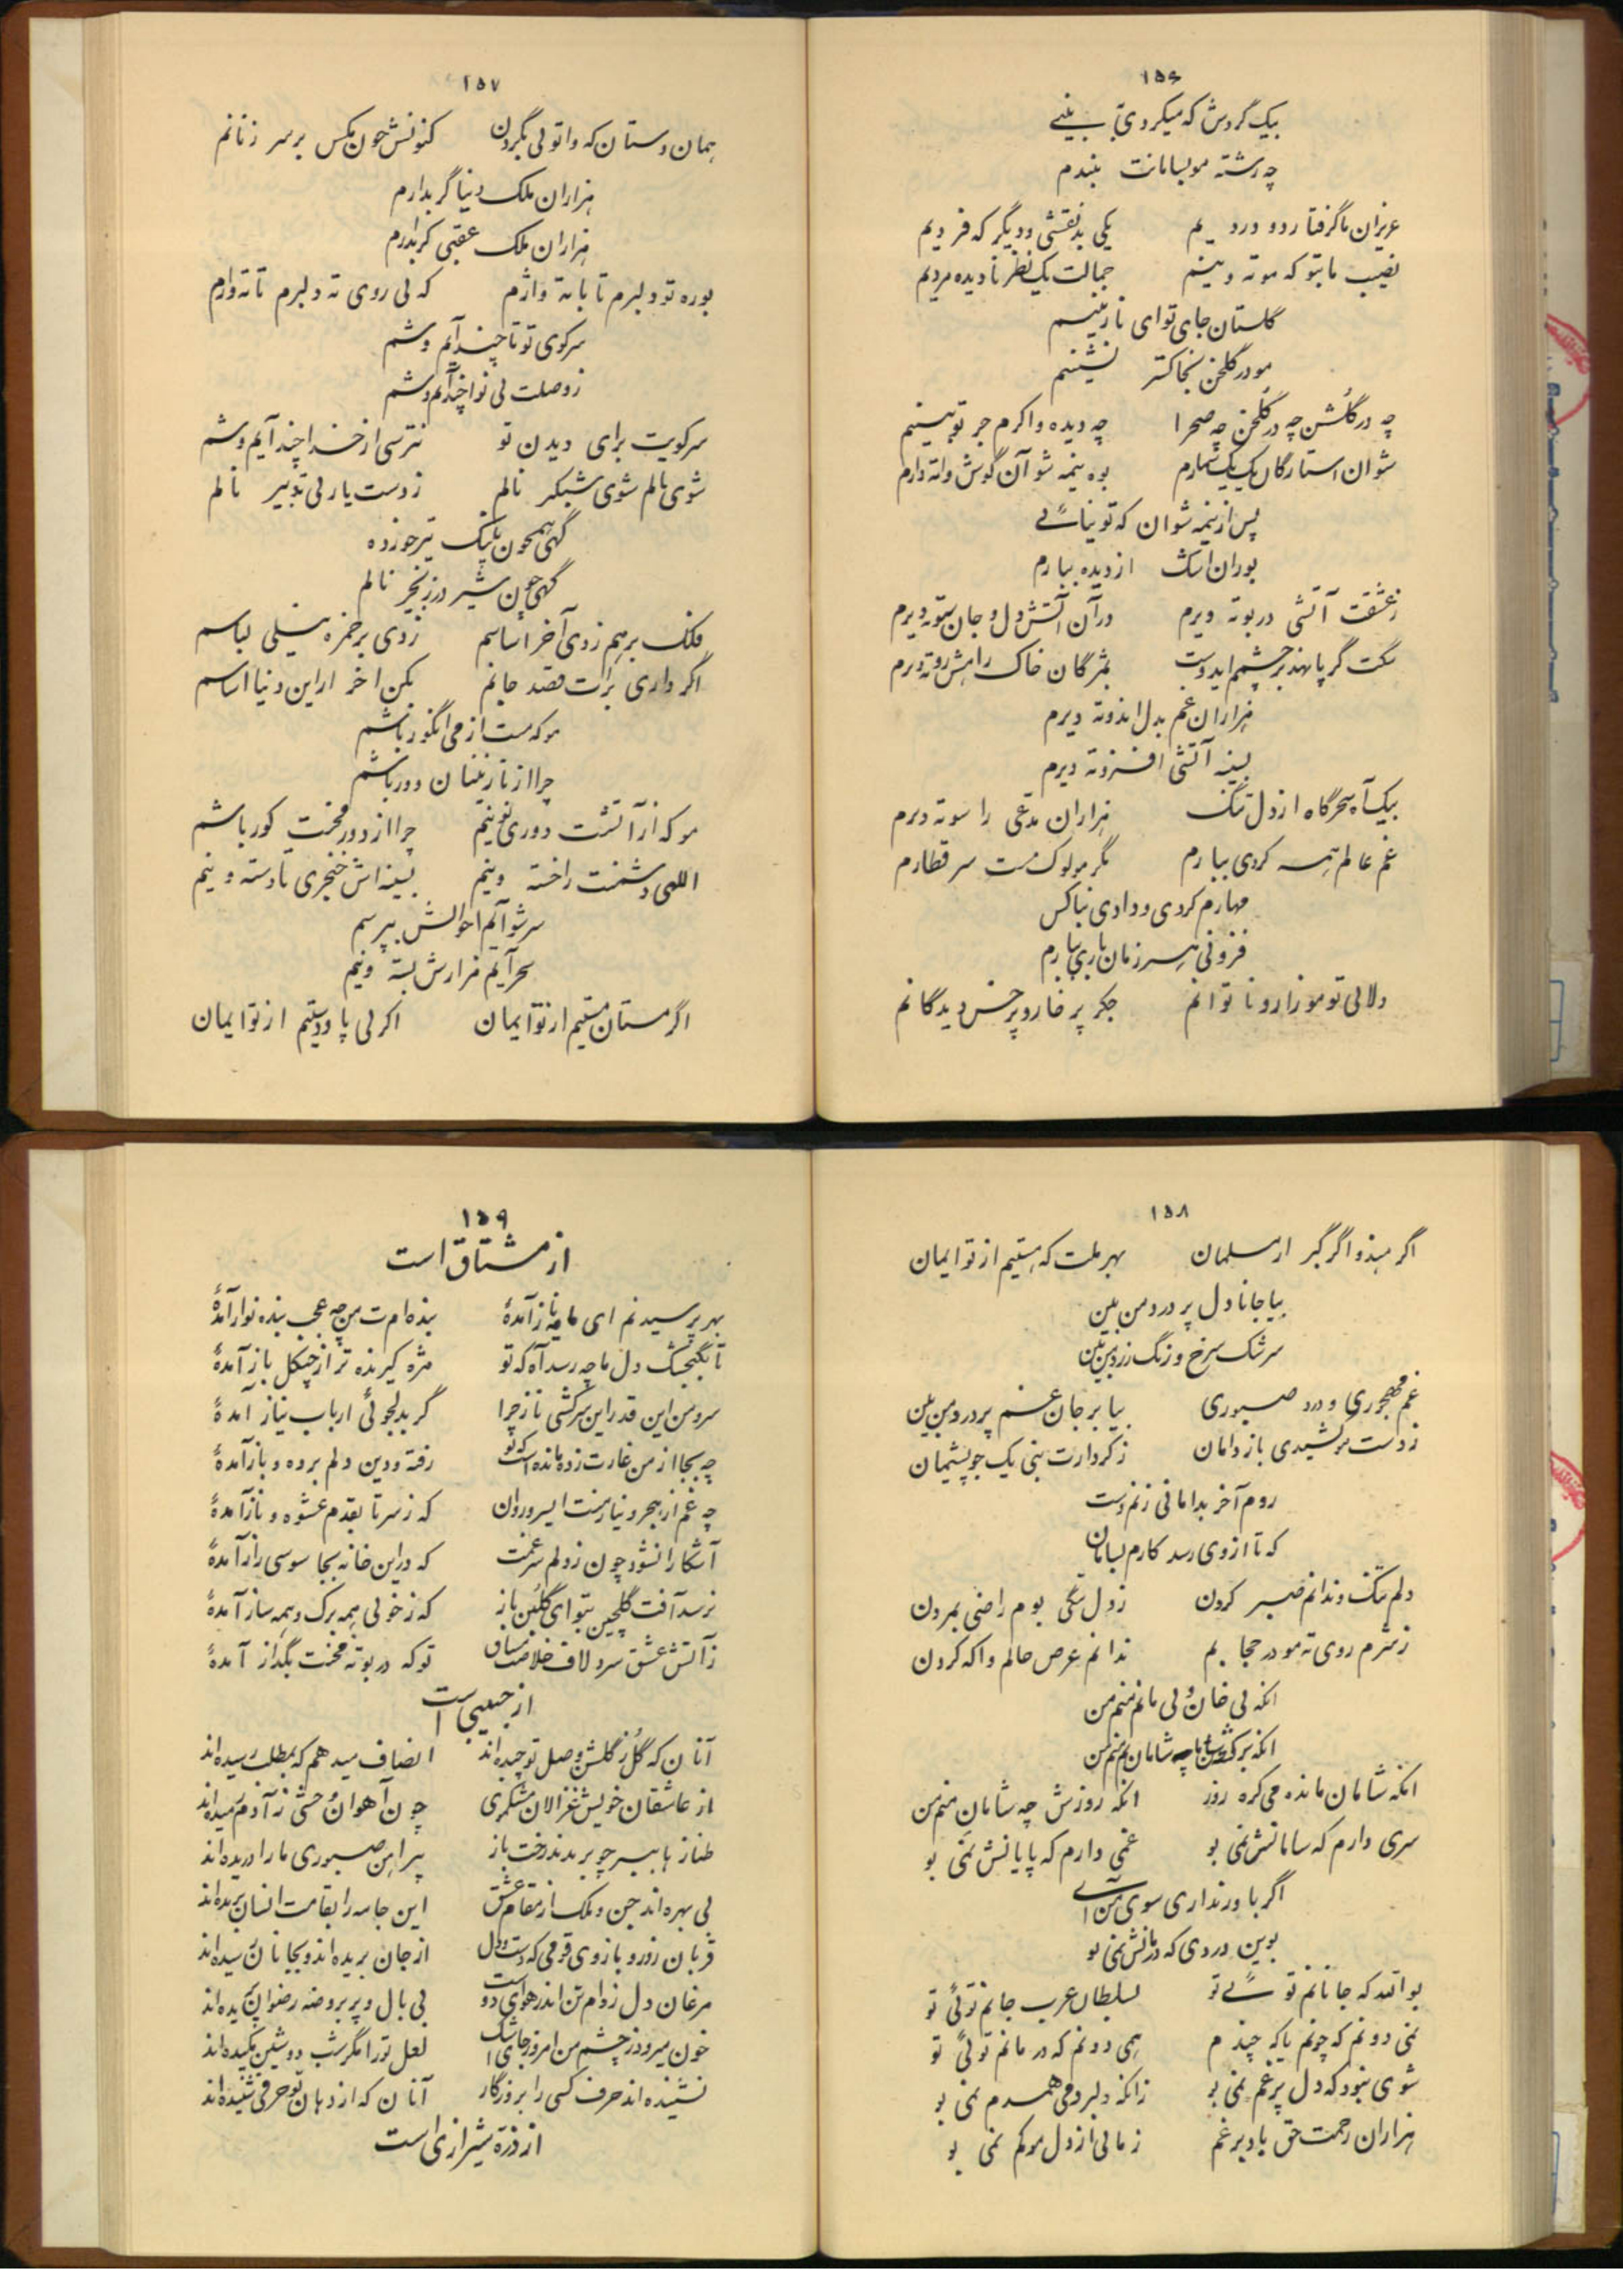 ۱۵۶
بیک گردش که میکردی به بینی
چه رشته مو بسامانت بندم
عزیزان ما گرفتار دو دردیم یکی بد نقشی و دیگر که فردیم
نصیب ما بتو که مو ته وینم جمالت یک نظر نادیده مردیم
گلستان جای تو ای نازنینم
مو در گلخن بخاکستر نشینم
چه در گلشن چه در گلخن چه صحرا چه دیده واکرم جز تو نبینم
شوان استارگان یک یک شمارم بوه نیمه شوآن گوش واته دارم
پس از نیمه شوان که تو نیائی
بوران اشک از دیده ببارم
زعشقت آتشی در بوته دیرم در آن آتش دل و جان سوته دیرم
سگت گر پا نهد بر چشمم ایدوست بمژگان خاک راهش روته دیرم
هزاران غم بدل اندوته دیرم
بسینه آتشی افروته دیرم
بیک آه سحرگاه از دل تنگ هزاران مدعی را سوته دیرم
غم عالم همه کردی ببارم مگر مو لوک مست سر قطارم
مهارم کردی و دادی بناکس
فزونی هر زمان باری ببارم
دلا بی تو مو زار و ناتوانم جگر پر خار و پر خس دیدگانم
۱۵۷
همان دستان که وا تو بی بگردن کنونش چون مگس بر سر زنانم
هزاران ملک دنیا گر بدارم
هزاران ملک عقبی گر بدارم
بوره تو دلبرم تا با ته واژم که بی روی ته دلبرم تا نه وارم
سر کوی تو تا چند آیم و شم
ز وصلت بی نوا چند آیم و شم
سر کویت برای دیدن تو نترسی از خدا چند آیم و شم
شوی نالم شوی شبگیر نالم ز دست یار بی تدبیر نالم
گهی همچون پلنگ تیر خورده
گهی چون شیر در زنجیر نالم
فلک برهم زدی آخر اساسم زدی بر خمره نیلی لباسم
اگر داری برات قصد جانم بکن آخر از این دنیا اساسم
مو که مست از می انگور باشم
چرا از نازنینان دور باشم
مو که از آتشت دوری نوینم چرا از دور محنت کور باشم
اللهی دشمنت را خسته وینم بسینه اش خنجری تا دسته وینم
سر شو آیم احوالش بپرسم
سحر آیم مزارش بسته وینم
اگر مستان مستیم از تو ایمان اگر بی پا و دستیم از تو ایمان
۱۵۸
اگر هندو اگر گبر ار مسلمان بهر ملت که هستیم از تو ایمان
بیا جانا دل پر درد من بین
سرشک سرخ و رنگ زرد من بین
غم مهجوری و درد صبوری بیا بر جان غم پرورد من بین
ز دست مو کشیدی باز دامان ز کردارت نبی یک جو پشیمان
روم آخر بدامانی زنم دست
که تا از وی رسد کارم بسامان
دلم تنگ و ندانم صبر کردن ز دل تنگی بوم راضی بمردن
ز شرم روی ته مو در حجابم ندانم عرض حالم واکه کردن
انکه بی خان و بی مانم منم من
انکه برگشته سامانم منم من
انکه شامان مانده می کره روز انکه روزش چه شامان منم من
سری دارم که سامانش نمی بو غمی دارم که پایانش نمی بو
اگر باور نداری سوی من آی
بوین دردی که درمانش نمی بو
بوالله که جانانم توئی تو بسلطان عرب جانم توئی تو
نمی دونم که چونم یا که چندم همی دونم که درمانم توئی تو
شوی نبود که دل پر غم نمی بو زانکه دلبر دمی همدم نمی بو
هزاران رحمت حق باد بر غم زمانی از دل مو کم نمی بو
۱۵۹
از مشتاق است
بهر پرسیدنم ای مایه ناز آمدهٔ بنده ام ت من چه عجب بنده نواز آمدهٔ
تا بگنجشک دل ما چه رسد آه که تو مژه گیرنده تر از چنگل باز آمدهٔ
سرو من این قدر این سرکشی ناز چرا گر بدلجوئی ارباب نیاز آمدهٔ
چه بجا از من غارت زده مانده است که تو رفته و دین و دلم برده و باز آمدهٔ
چه غم از هجر و نیاز منت ای سرو روان که ز سر تا بقدم عشوه و ناز آمدهٔ
آشکارا نشود چون ز دلم سر غمت که در این خانه بجاسوسی راز آمدهٔ
نرسد آفت گلچین بتو ای گلبن ناز که ز خوبی همه برگ و همه ساز آمدهٔ
ز آتش عشق سرد لاف خلاصت مشتاق تو که در بوته محنت بگداز آمدهٔ
از حبیبی است
آنان که گل ز گلشن وصل تو چیده اند انصاف میدهم که بمطلب رسیده اند
از عاشقان خویش غزالان مشگموی چون آهوان وحشی ز آدم رمیده اند
طناز هابسر چو بریدند رخت باز پیراهن صبوری ما را دریده اند
بی بهره اند جن و ملک از مقام عشق این جامه را بقامت انسان بریده اند
قربان زور و بازوی قومی که دست و دل از جان بریده اند و بجانان رسیده اند
مرغان دل ز دام تن اندر هوای دوست بی بال و پر بروضه رضوان پریده اند
خون میرود ز چشم من امروز جای اشک لعل تو را مگر شب دوشین مکیده اند
نشنیده اند حرف کسی را بروزگار آنان که از دهان تو حرفی شنیده اند
از ذره شیرازی است